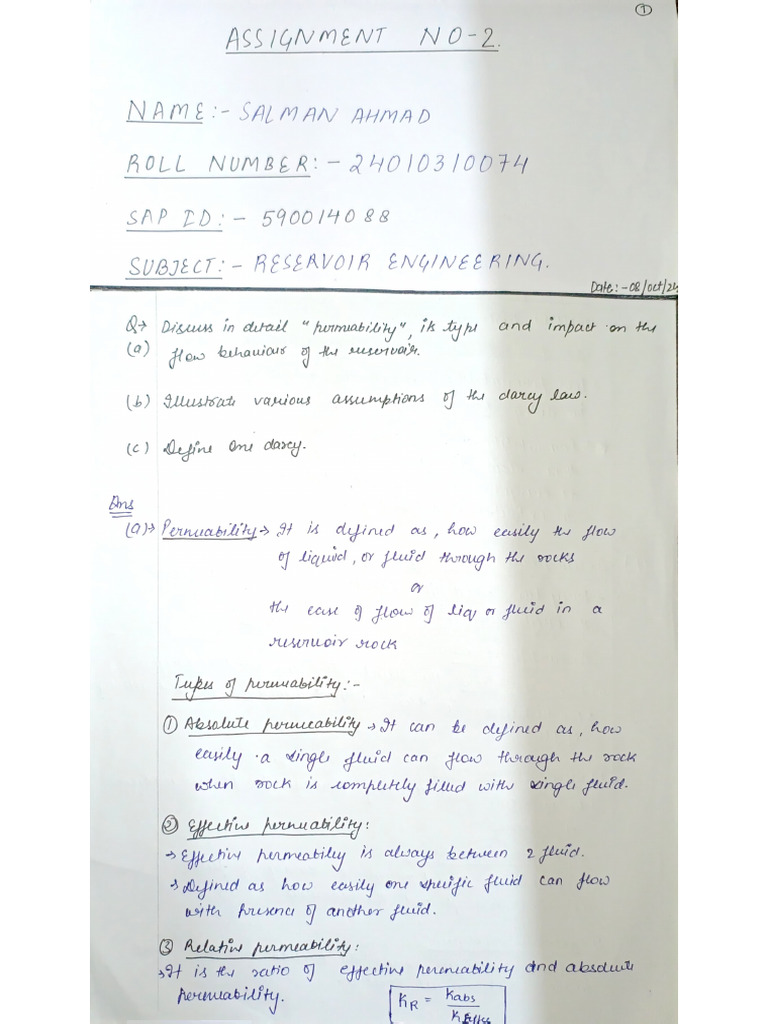 ①
ASSIGNMENT NO-2.
NAME:- SALMAN AHMAD
ROLL NUMBER:- 24010310074
SAP ID:- 590014088
SUBJECT:- RESERVOIR ENGINEERING.
Date:-08/oct/25
Q→ Discuss in detail "permeability", its type and impact on the
(a) flow behaviour of the reservoir.
(b) Illustrate various assumptions of the darcy law.
(c) Define One darcy.
Ans
(a)→ Permeability→ It is defined as, how easily the flow
of liquid, or fluid through the rocks
or
the ease of flow of liq or fluid in a
reservoir rock
Types of permeability:-
① Absolute permeability → It can be defined as, how
easily a single fluid can flow through the rock
when rock is completely filled with single fluid.
② Effective permeability:
→ Effective permeability is always between 2 fluid.
→ Defined as how easily one specific fluid can flow
with presence of another fluid.
③ Relative permeability:
→ It is the ratio of effective permeability and absolute
permeability.
K_R = K_abs / K_effec